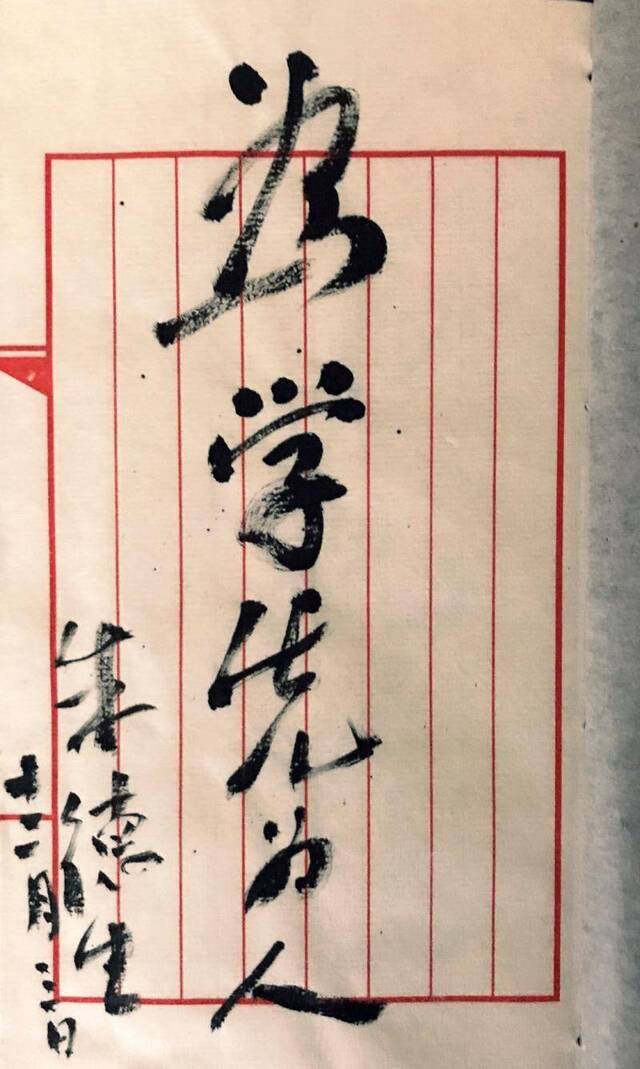 为学先为人
朱德生
十二月三日